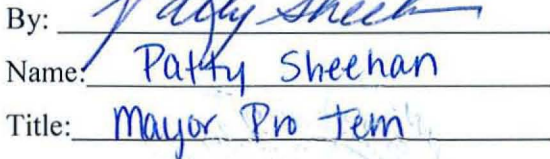 By: Patty Sheehan
Name: Patty Sheehan
Title: Mayor Pro Tem